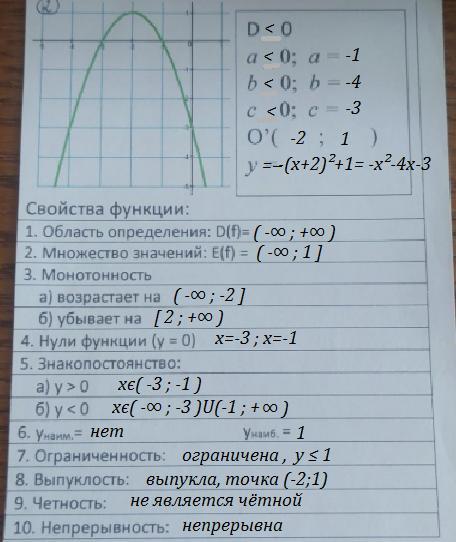 2
D < 0
a < 0; a = -1
b < 0; b = -4
c < 0; c = -3
O'( -2 ; 1 )
y =–(x+2)²+1= -x²-4x-3
Свойства функции:
1. Область определения: D(f)= ( -∞ ; +∞ )
2. Множество значений: E(f) = ( -∞ ; 1 ]
3. Монотонность
а) возрастает на ( -∞ ; -2 ]
б) убывает на [ 2 ; +∞ )
4. Нули функции (y = 0) x=-3 ; x=-1
5. Знакопостоянство:
а) y > 0 xϵ( -3 ; -1 )
б) y < 0 xϵ( -∞ ; -3 )U(-1 ; +∞ )
6. yнаим.= нет yнаиб. = 1
7. Ограниченность: ограничена , y ≤ 1
8. Выпуклость: выпукла, точка (-2;1)
9. Четность: не является чётной
10. Непрерывность: непрерывна